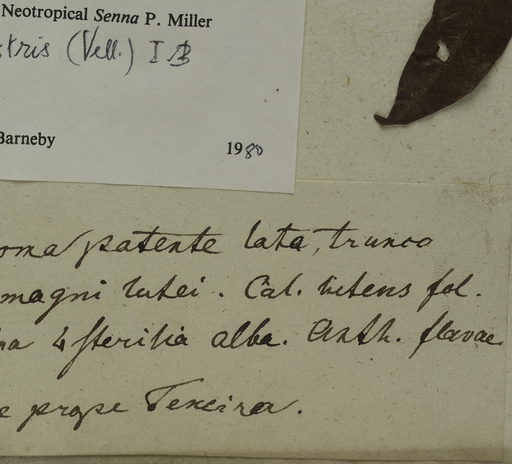 Neotropical Senna P. Miller
stris (Vell.) I & B
Barneby 1980
oma patente lata, trunco
magni lutei. Cal. lutens fol.
na 4 sterilia alba. Anth. flavae
e prope Texeira.